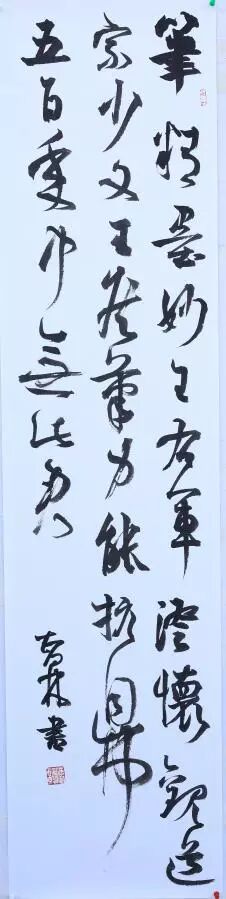 筆精墨妙王右軍澄懷觀道
宗少文王侯筆力能扛鼎
五百年來無此君
林書